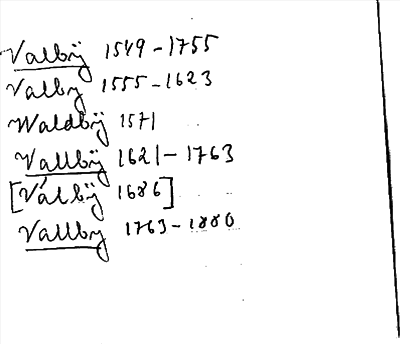 Valbÿ 1549-1755
Valby 1555-1623
Waldbÿ 1571
Vallbÿ 1621-1763
[Válbÿ 1686]
Vallby 1763-1880